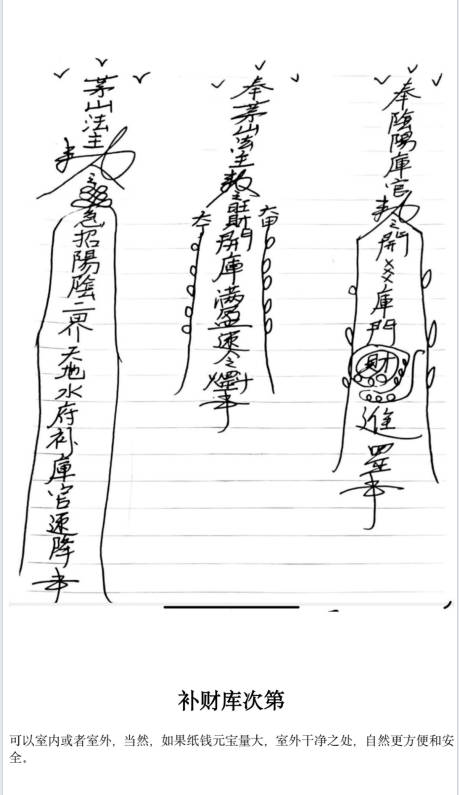 奉陰陽庫官
之開
庫門
財
進
奉茅山法主
之旺財開庫滿盈速令
茅山法主
急招陽陰二界天地水府补庫官速降
补财库次第
可以室内或者室外，当然，如果纸钱元宝量大，室外干净之处，自然更方便和安
全。